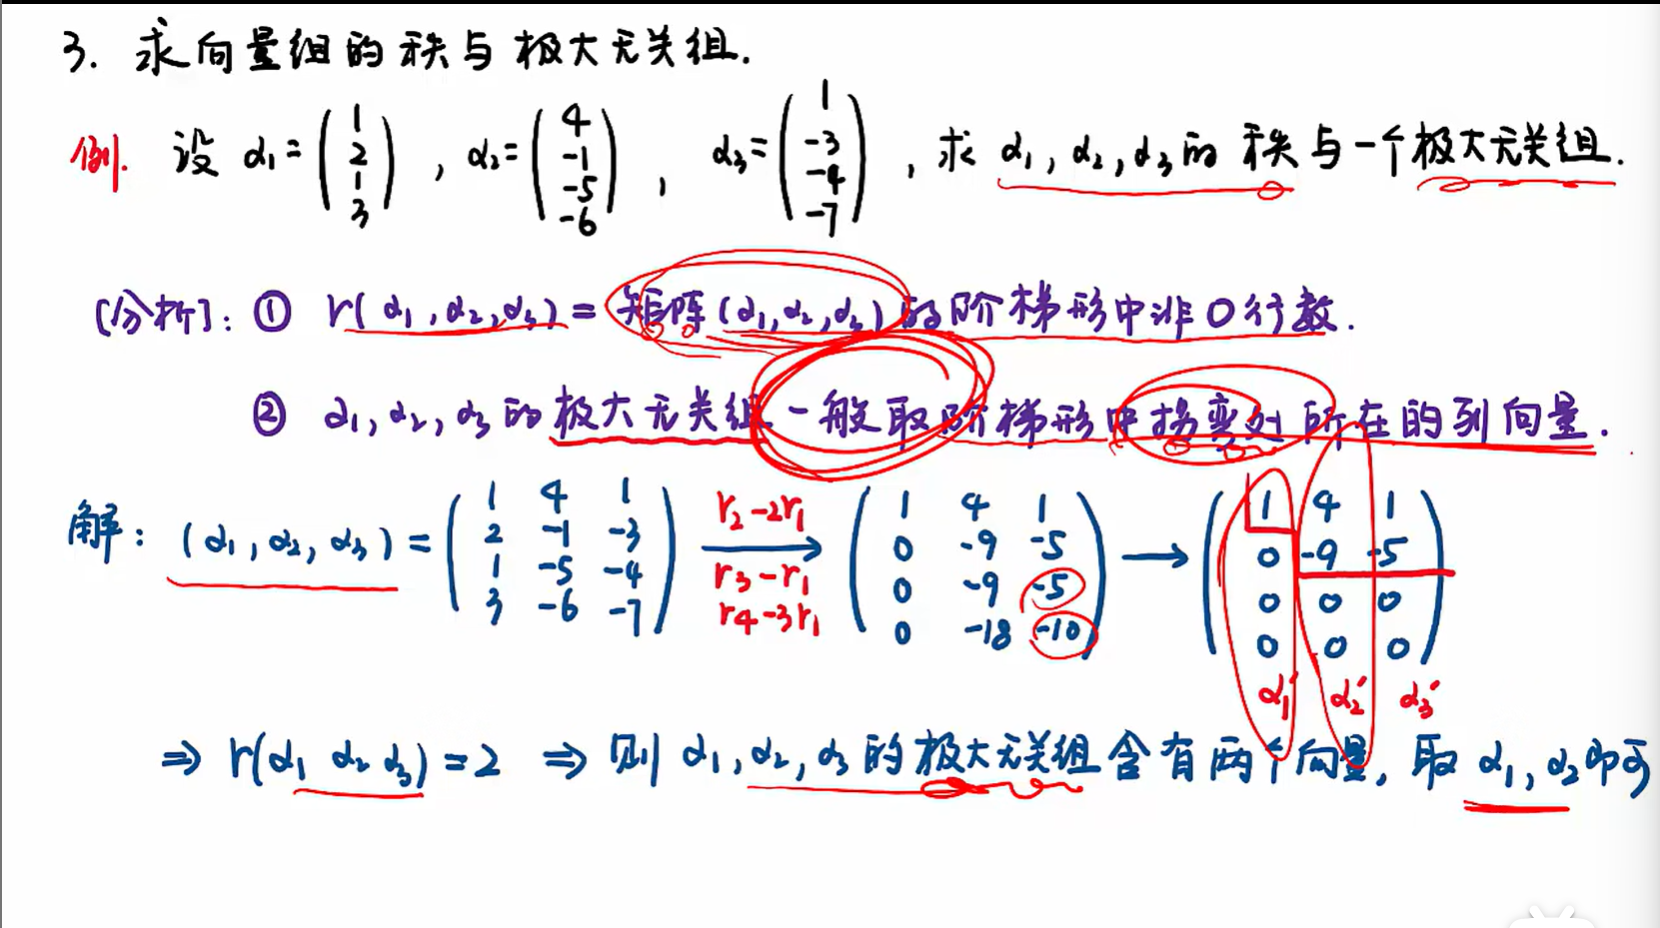 3. 求向量组的秩与极大无关组.
例. 设 α₁=(1 2 1 3), α₂=(4 -1 -5 -6), α₃=(1 -3 -4 -7), 求 α₁, α₂, α₃的 秩与一个极大无关组.
[分析]: ① r(α₁, α₂, α₃) = 矩阵(α₁, α₂, α₃)的阶梯形中非0行数.
② α₁, α₂, α₃的极大无关组一般取阶梯形中拐弯处所在的列向量.
解: (α₁, α₂, α₃) = (1 4 1
2 -1 -3
1 -5 -4
3 -6 -7)
r₂-2r₁
r₃-r₁
r₄-3r₁
→ (1 4 1
0 -9 -5
0 -9 -5
0 -18 -10)
→ (1 4 1
0 -9 -5
0 0 0
0 0 0)
α₁' α₂' α₃'
⇒ r(α₁ α₂ α₃) = 2 ⇒ 则 α₁, α₂, α₃的极大无关组含有两个向量, 取 α₁, α₂即可